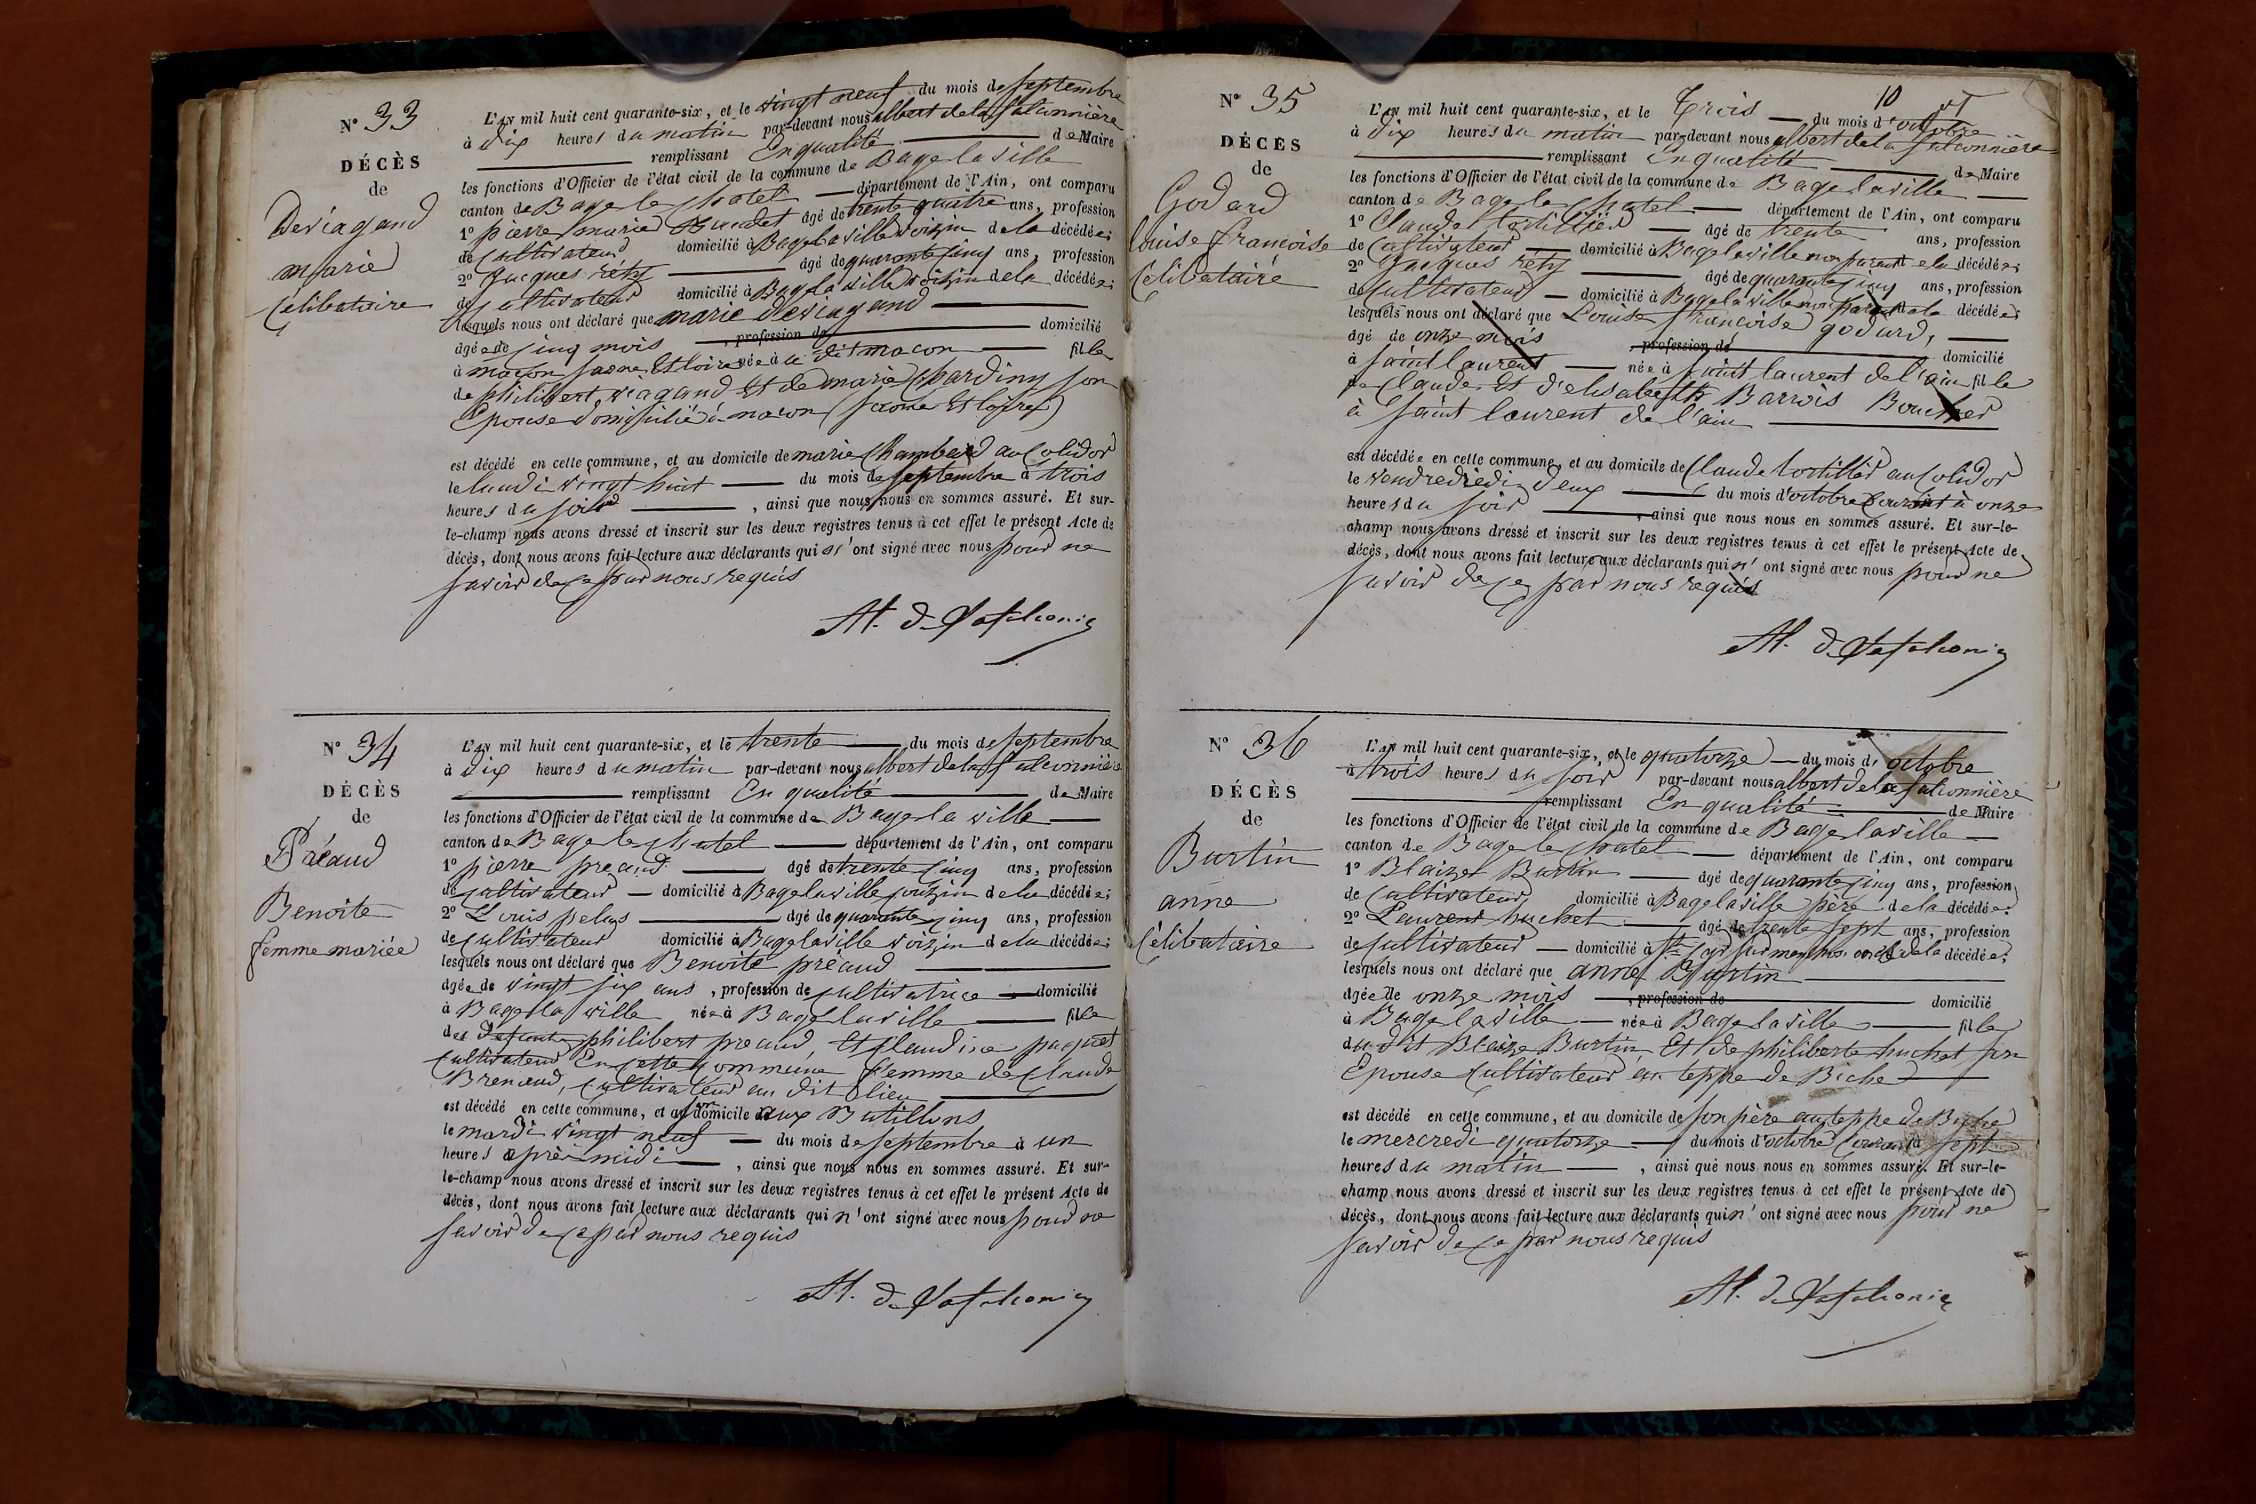 N° 33
DÉCÈS
de
Deviagand
marie
Celibataire
L'AN mil huit cent quarante-six, et le vingt neuf du mois de septembre
à dix heures du matin par-devant nous albert de la falconnière
remplissant En qualité de Maire
les fonctions d'Officier de l'état civil de la commune de Bage la ville
canton de Bage le chatel département de l'Ain, ont comparu
1° pierre marie âgé de trente quatre ans, profession
de cultivateur domicilié à Bage la ville voizin de la décédée;
2° Jacques réty âgé de quarante cinq ans, profession
de cultivateur domicilié à Bage la ville voizin de la décédée;
lesquels nous ont déclaré que marie deviagand
âgée de cinq mois , profession de domicilié
à macon saone Et loire née à u dit macon fille
de philibert viagand Et de marie chardiny son
Epouse domisilié à macon (saone Et loire)
est décédé en cette commune, et au domicile de marie Chambard au Colidor
le lundi vingt huit du mois de septembre à trois
heures du soir , ainsi que nous nous en sommes assuré. Et sur-
le-champ nous avons dressé et inscrit sur les deux registres tenus à cet effet le présent Acte de
décès, dont nous avons fait lecture aux déclarants qui n'ont signé avec nous pour ne
savoir de ce par nous requis
Al. de Lafalconie
N° 34
DÉCÈS
de
Préaud
Benoite
femme mariée
L'AN mil huit cent quarante-six, et le trente du mois de septembre
à dix heures du matin par-devant nous albert de la falconnière
remplissant En qualité de Maire
les fonctions d'Officier de l'état civil de la commune de Bage la ville
canton de Bage le chatel département de l'Ain, ont comparu
1° pierre preaud âgé de trente cinq ans, profession
de cultivateur domicilié à Bage la ville couzin de la décédée;
2° Louis pelus âgé de quarante cinq ans, profession
de cultivateur domicilié à Bage la ville voizin de la décédée;
lesquels nous ont déclaré que Benoite préaud
âgée de vingt six ans , profession de cultivatrice domicilié
à Bage la ville née à Bage la ville fille
des defunts philibert preaud, Et Claudine paquet
cultivateur En cette Commune femme de Claude
Brenaud, cultivateur au dit lieu
est décédé en cette commune, et au son domicile aux Butillons
le mardi vingt neuf du mois de septembre à un
heures après midi , ainsi que nous nous en sommes assuré. Et sur-
le-champ nous avons dressé et inscrit sur les deux registres tenus à cet effet le présent Acte de
décès, dont nous avons fait lecture aux déclarants qui n'ont signé avec nous pour ne
savoir de ce par nous requis
Al. de Lafalconie
10
N° 35
DÉCÈS
de
Godard
louise francoise
Célibataire
L'AN mil huit cent quarante-six, et le Trois du mois d'octobre
à dix heures du matin par-devant nous albert de la falconnière
remplissant En qualité de Maire
les fonctions d'Officier de l'état civil de la commune de Bage la ville
canton de Bage le chatel département de l'Ain, ont comparu
1° Claude tortillier âgé de trente ans, profession
de Cultivateur domicilié à Bage la ville non parent de la décédée;
2° Jacques réty âgé de quarante cinq ans, profession
de Cultivateur domicilié à Bage la ville non parent de la décédée;
lesquels nous ont déclaré que Louise francoise godard,
âgé de onze mois , profession de domicilié
à saint laurent née à saint laurent de l'ain fille
de Claude Et d'elisabeth Barrois Boucher
à saint laurent de l'ain
est décédée en cette commune, et au domicile de Claude tortillier au Colidor
le vendredi deux du mois d'octobre Courant à onze
heures du soir , ainsi que nous nous en sommes assuré. Et sur-le-
champ nous avons dressé et inscrit sur les deux registres tenus à cet effet le présent Acte de
décès, dont nous avons fait lecture aux déclarants qui n'ont signé avec nous pour ne
savoir de ce par nous requis
Al. de Lafalconie
N° 36
DÉCÈS
de
Burtin
anne
Célibataire
L'AN mil huit cent quarante-six, et le quatorze du mois d'octobre
à trois heures du soir par-devant nous albert de la falconnière
remplissant En qualité de Maire
les fonctions d'Officier de l'état civil de la commune de Bage la ville
canton de Bage le chatel département de l'Ain, ont comparu
1° Blaize Burtin âgé de quarante cinq ans, profession
de Cultivateur domicilié à Bage la ville père de la décédée;
2° Laurent huchet âgé de trente sept ans, profession
de Cultivateur domicilié à St Cyr sur menthon oncle de la décédée;
lesquels nous ont déclaré que anne Burtin
âgée de onze mois , profession de domicilié
à Bage la ville née à Bage la ville fille
du dit Blaize Burtin, Et de philiberte huchet son
Epouse Cultivateur en teppe de Biche
est décédé en cette commune, et au domicile de son père au teppe de Biche
le mercredi quatorze du mois d'octobre Courant à sept
heures du matin , ainsi que nous nous en sommes assuré. Et sur-le-
champ nous avons dressé et inscrit sur les deux registres tenus à cet effet le présent Acte de
décès, dont nous avons fait lecture aux déclarants qui n'ont signé avec nous pour ne
savoir de ce par nous requis
Al. de Lafalconie